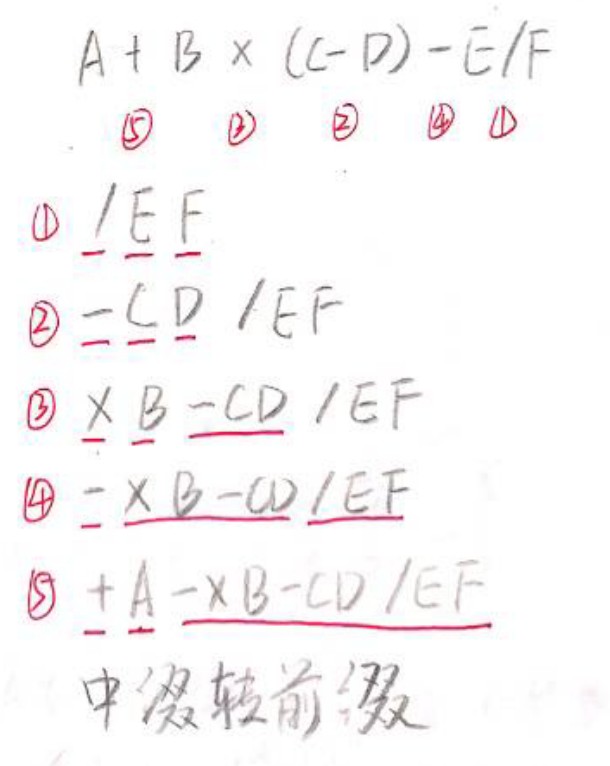 A + B × (C - D) - E/F
⑤ ③ ② ④ ①
① / E F
② - C D / E F
③ × B - C D / E F
④ - × B - C D / E F
⑤ + A - × B - C D / E F
中缀转前缀